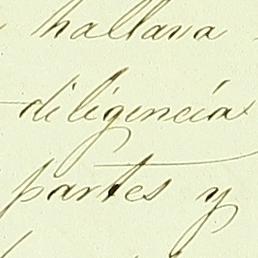 hallava
diligencia
partes y